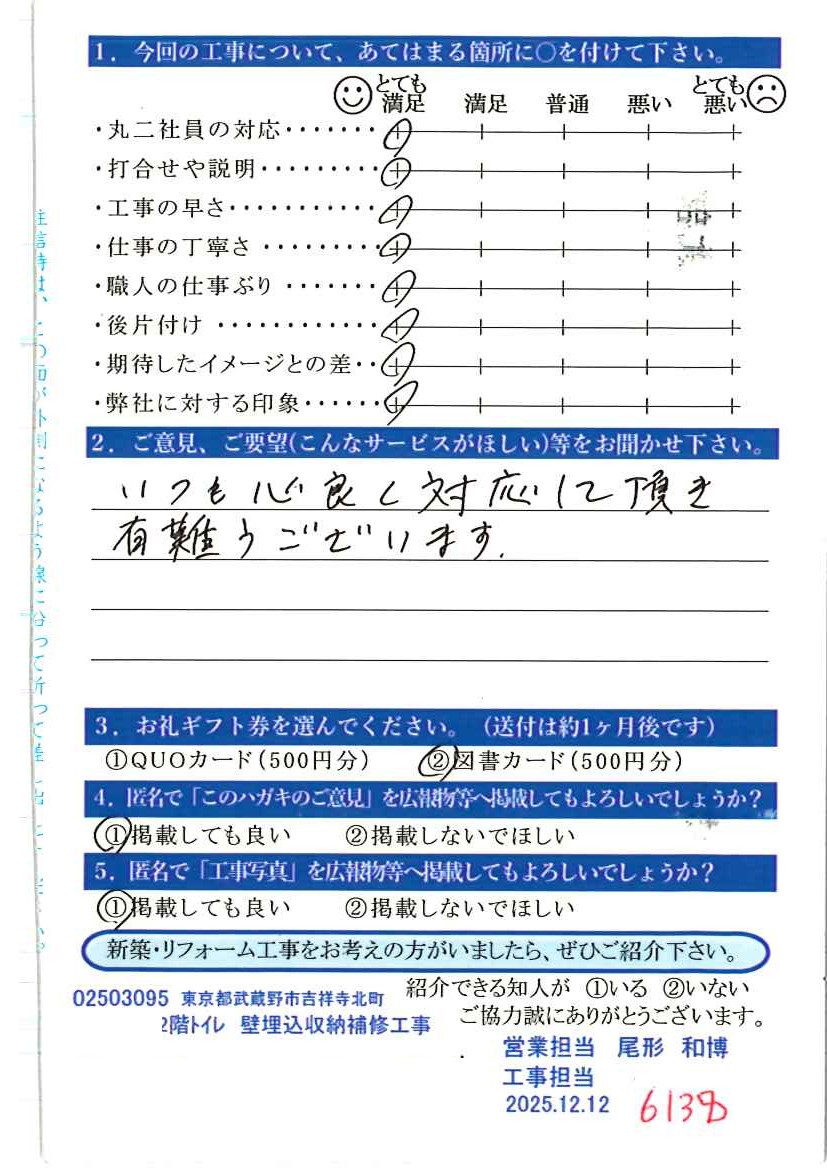 1．今回の工事について、あてはまる箇所に〇を付けて下さい。
とても満足 満足 普通 悪い とても悪い
・丸二社員の対応・・・・・・・
・打合せや説明・・・・・・・・・
・工事の早さ・・・・・・・・・・・
・仕事の丁寧さ ・・・・・・・・・
・職人の仕事ぶり ・・・・・・・
・後片付け ・・・・・・・・・・・・
・期待したイメージとの差・・
・弊社に対する印象・・・・・・
2．ご意見、ご要望(こんなサービスがほしい)等をお聞かせ下さい。
いつも心良く対応して頂き
有難うございます.
3．お礼ギフト券を選んでください。（送付は約1ヶ月後です）
①QUOカード(500円分) ②図書カード(500円分)
4．匿名で「このハガキのご意見」を広報物等へ掲載してもよろしいでしょうか？
①掲載しても良い ②掲載しないでほしい
5．匿名で「工事写真」を広報物等へ掲載してもよろしいでしょうか？
①掲載しても良い ②掲載しないでほしい
新築・リフォーム工事をお考えの方がいましたら、ぜひご紹介下さい。
紹介できる知人が ①いる ②いない
02503095 東京都武蔵野市吉祥寺北町
2階トイレ 壁埋込収納補修工事
ご協力誠にありがとうございます。
営業担当 尾形 和博
工事担当
2025.12.12
6138